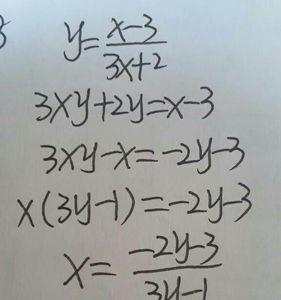 y=\frac{x-3}{3x+2}
3xy+2y=x-3
3xy-x=-2y-3
x(3y-1)=-2y-3
x=\frac{-2y-3}{3y-1}